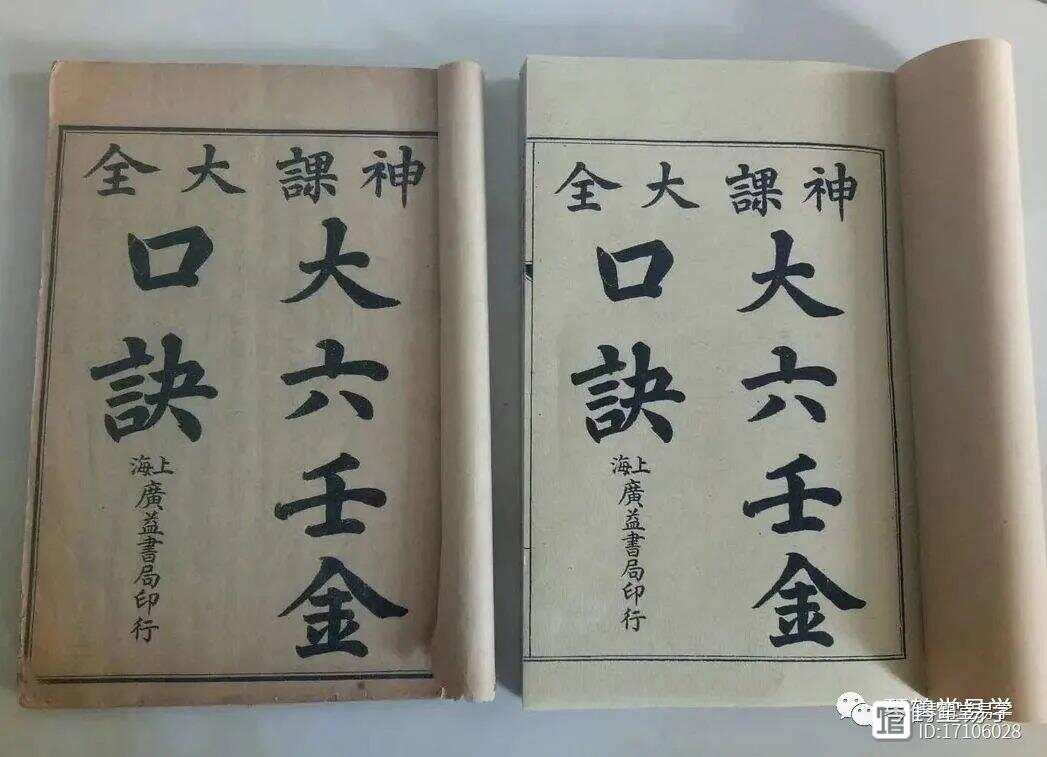 神課大全
大六壬金
口訣
上海
廣益書局印行
神課大全
大六壬金
口訣
上海
廣益書局印行
ID:17106028